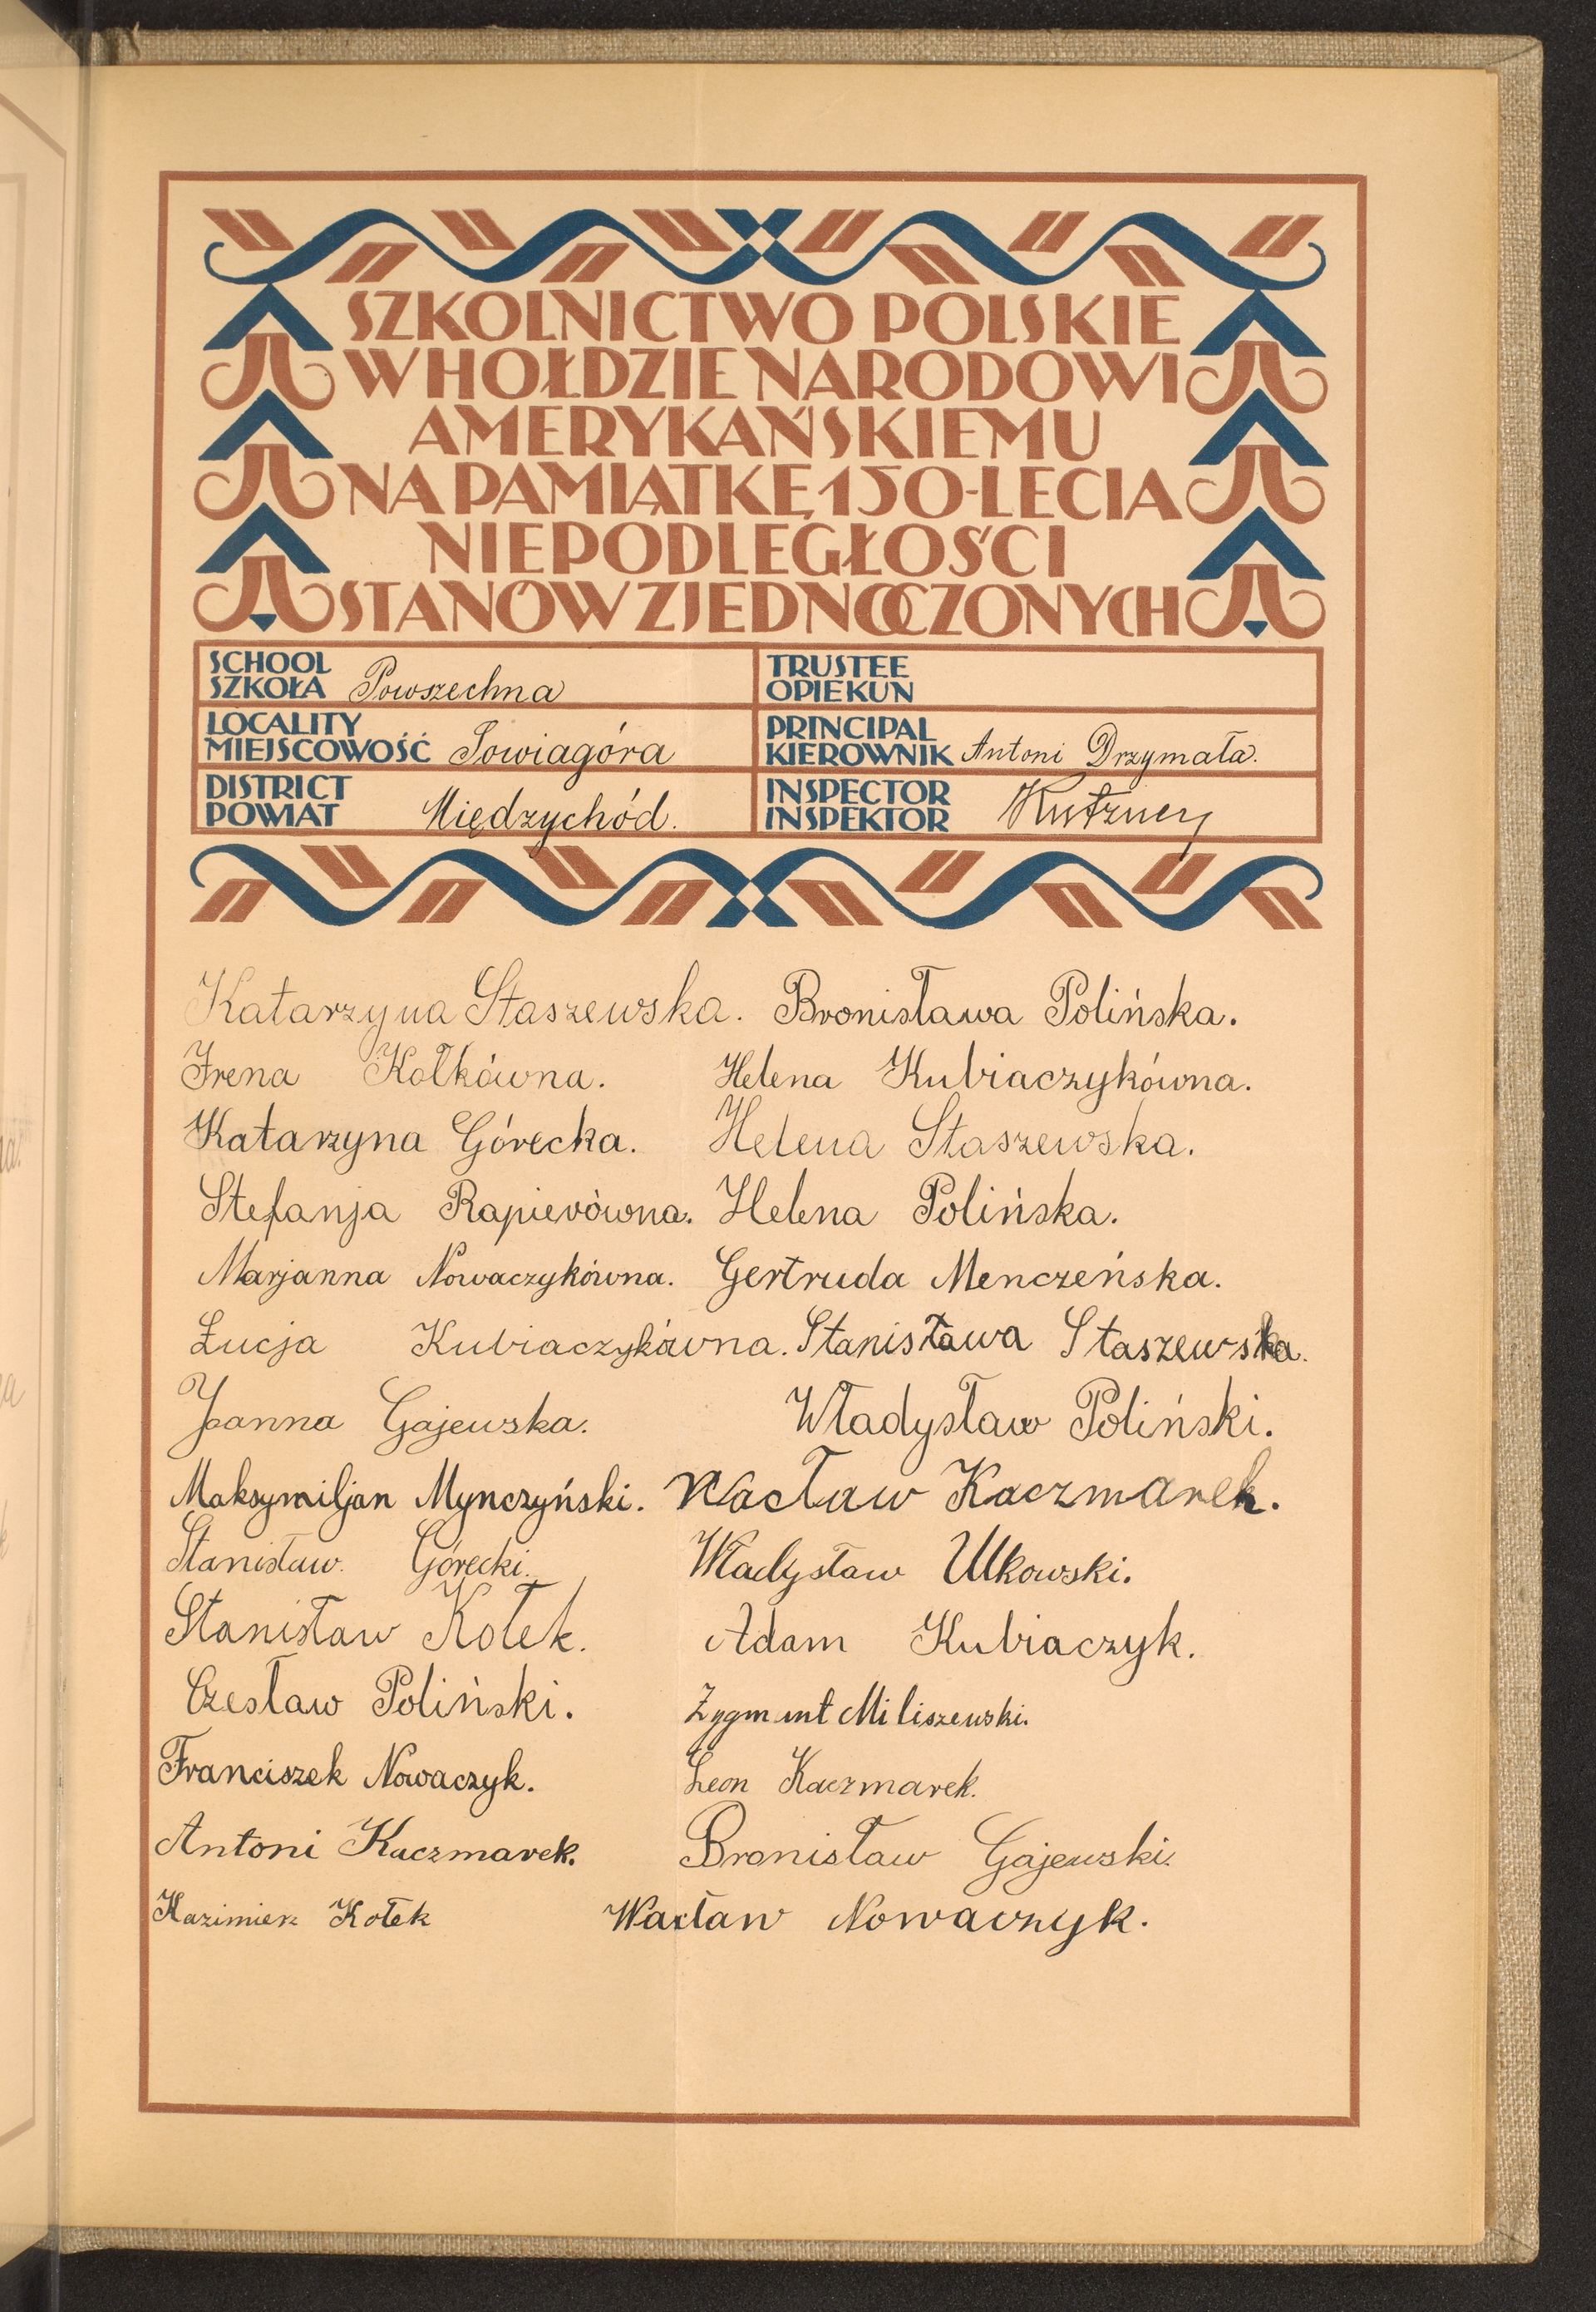 SZKOLNICTWO POLSKIE
W HOŁDZIE NARODOWI
AMERYKAŃSKIEMU
NA PAMIĄTKĘ 150-LECIA
NIEPODLEGŁOŚCI
STANÓW ZJEDNOCZONYCH
SCHOOL
SZKOŁA Powszechna
TRUSTEE
OPIEKUN
LOCALITY
MIEJSCOWOŚĆ Sowiagóra
PRINCIPAL
KIEROWNIK Antoni Drzymała.
DISTRICT
POWIAT Międzychód.
INSPECTOR
INSPEKTOR
Katarzyna Staszewska. Bronisława Polińska.
Irena Kołkówna. Helena Kubiaczykówna.
Katarzyna Górecka. Helena Staszewska.
Stefanja Rapierówna. Helena Polińska.
Marjanna Nowaczykówna. Gertruda Menczeńska.
Łucja Kubiaczykówna. Stanisława Staszewska.
Joanna Gajewska. Władysław Poliński.
Maksymiljan Mynczyński. Wacław Kaczmarek.
Stanisław. Górecki. Władysław Ulkowski.
Stanisław Kołek. Adam Kubiaczyk.
Czesław Poliński. Zygmunt Miliszewski.
Franciszek Nowaczyk. Leon Kaczmarek.
Antoni Kaczmarek. Bronisław Gajewski.
Kazimierz Kołek Wacław Nowaczyk.